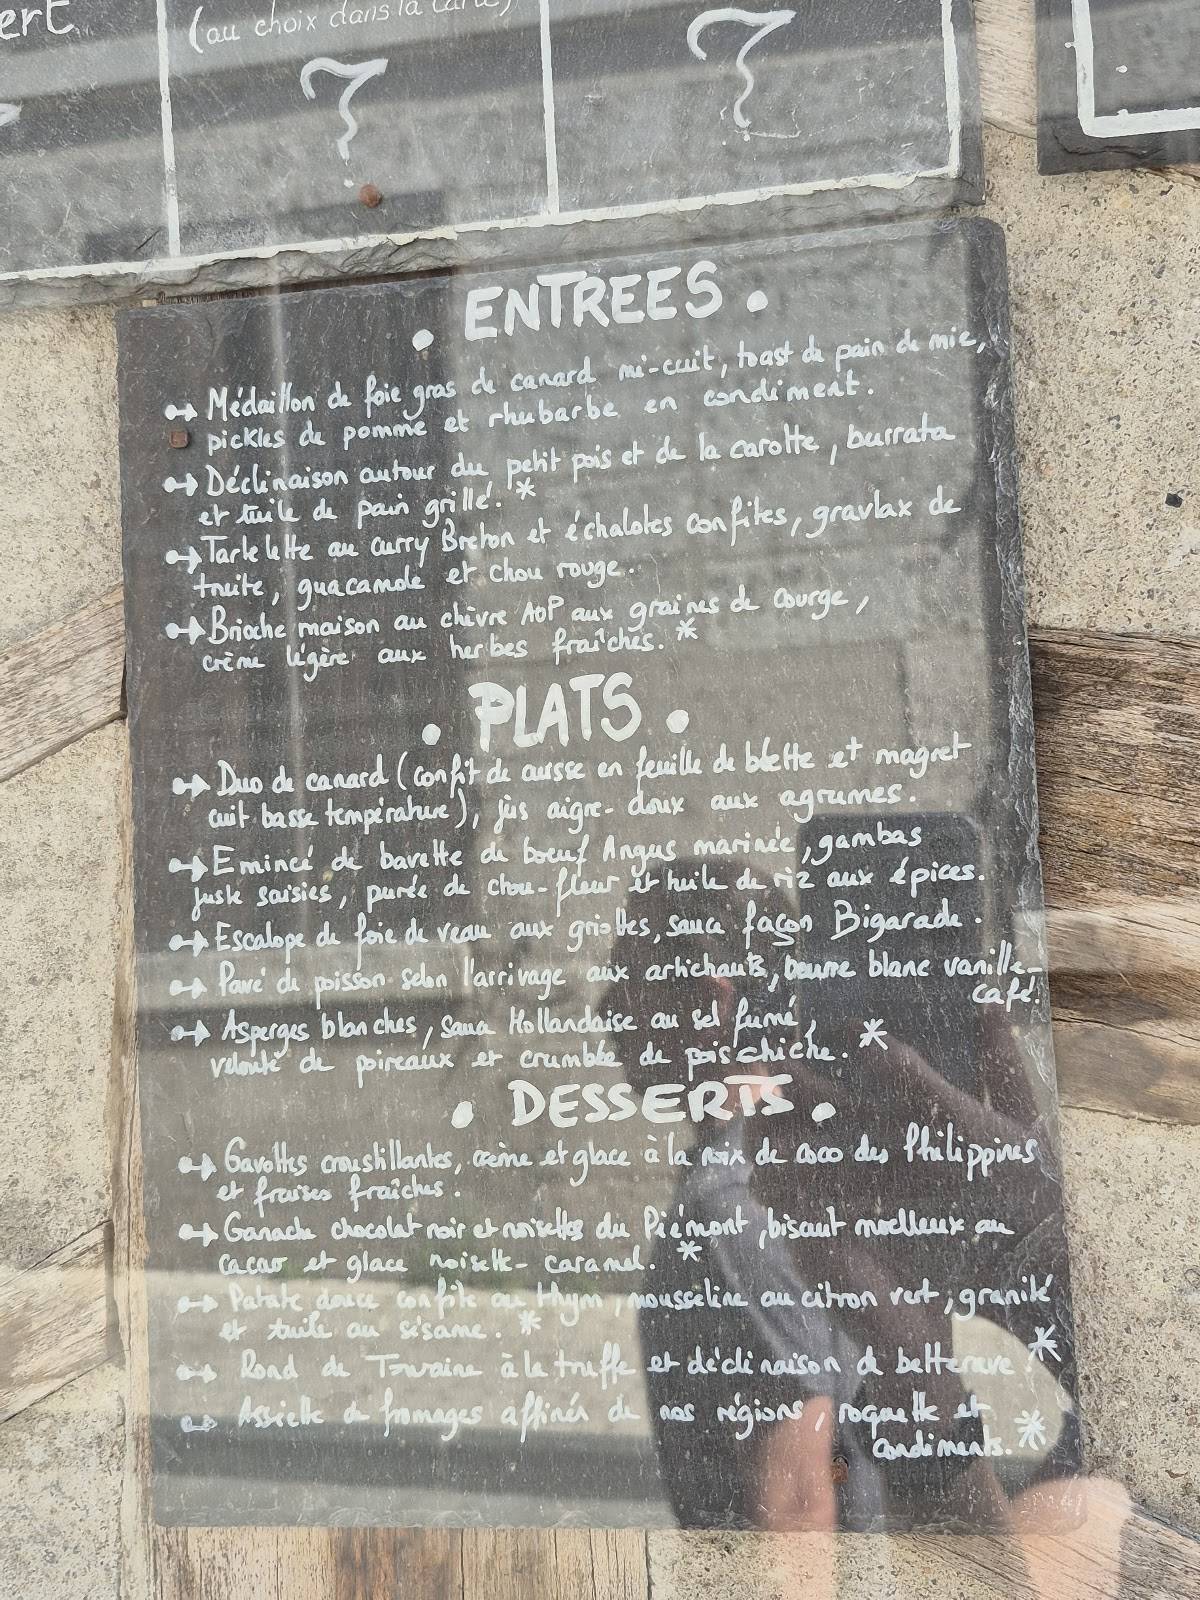 ert
(au choix dans la carte)
?
?
• ENTREES •
Médaillon de foie gras de canard mi-cuit, toast de pain de mie,
pickles de pomme et rhubarbe en condiment.
Déclinaison autour du petit pois et de la carotte, burrata
et tuile de pain grillé. *
Tartelette au curry Breton et échalotes confites, gravlax de
truite, guacamole et chou rouge.
Brioche maison au chèvre AOP aux graines de courge,
crème légère aux herbes fraîches. *
• PLATS •
Duo de canard (confit de cuisse en feuille de blette et magret
cuit basse température), jus aigre-doux aux agrumes.
Emincé de bavette de boeuf Angus marinée, gambas
juste saisies, purée de chou-fleur et huile de riz aux épices.
Escalope de foie de veau aux griottes, sauce façon Bigarade.
Pavé de poisson selon l'arrivage aux artichauts, beurre blanc vanille-
café.
Asperges blanches, sauce Hollandaise au sel fumé,
velouté de poireaux et crumble de pois chiche. *
• DESSERTS •
Gavottes croustillantes, crème et glace à la noix de coco des Philippines
et fraises fraîches.
Ganache chocolat noir et noisettes du Piémont, biscuit moelleux au
cacao et glace noisette-caramel. *
Patate douce confite au thym, mousseline au citron vert, granité
et tuile au sésame. *
Rond de Touraine à la truffe et déclinaison de betterave. *
Assiette de fromages affinés de nos régions, roquette et
condiments. *